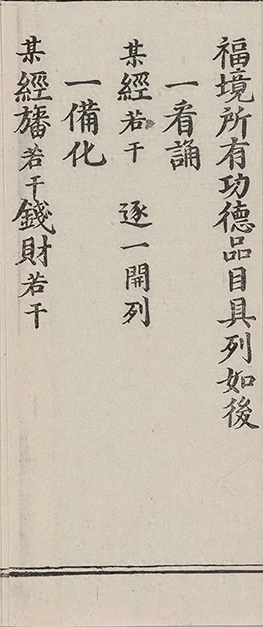 福境所有功德品目具列如後
一看誦
某經若干 逐一開列
一備化
某經旛若干錢財若干